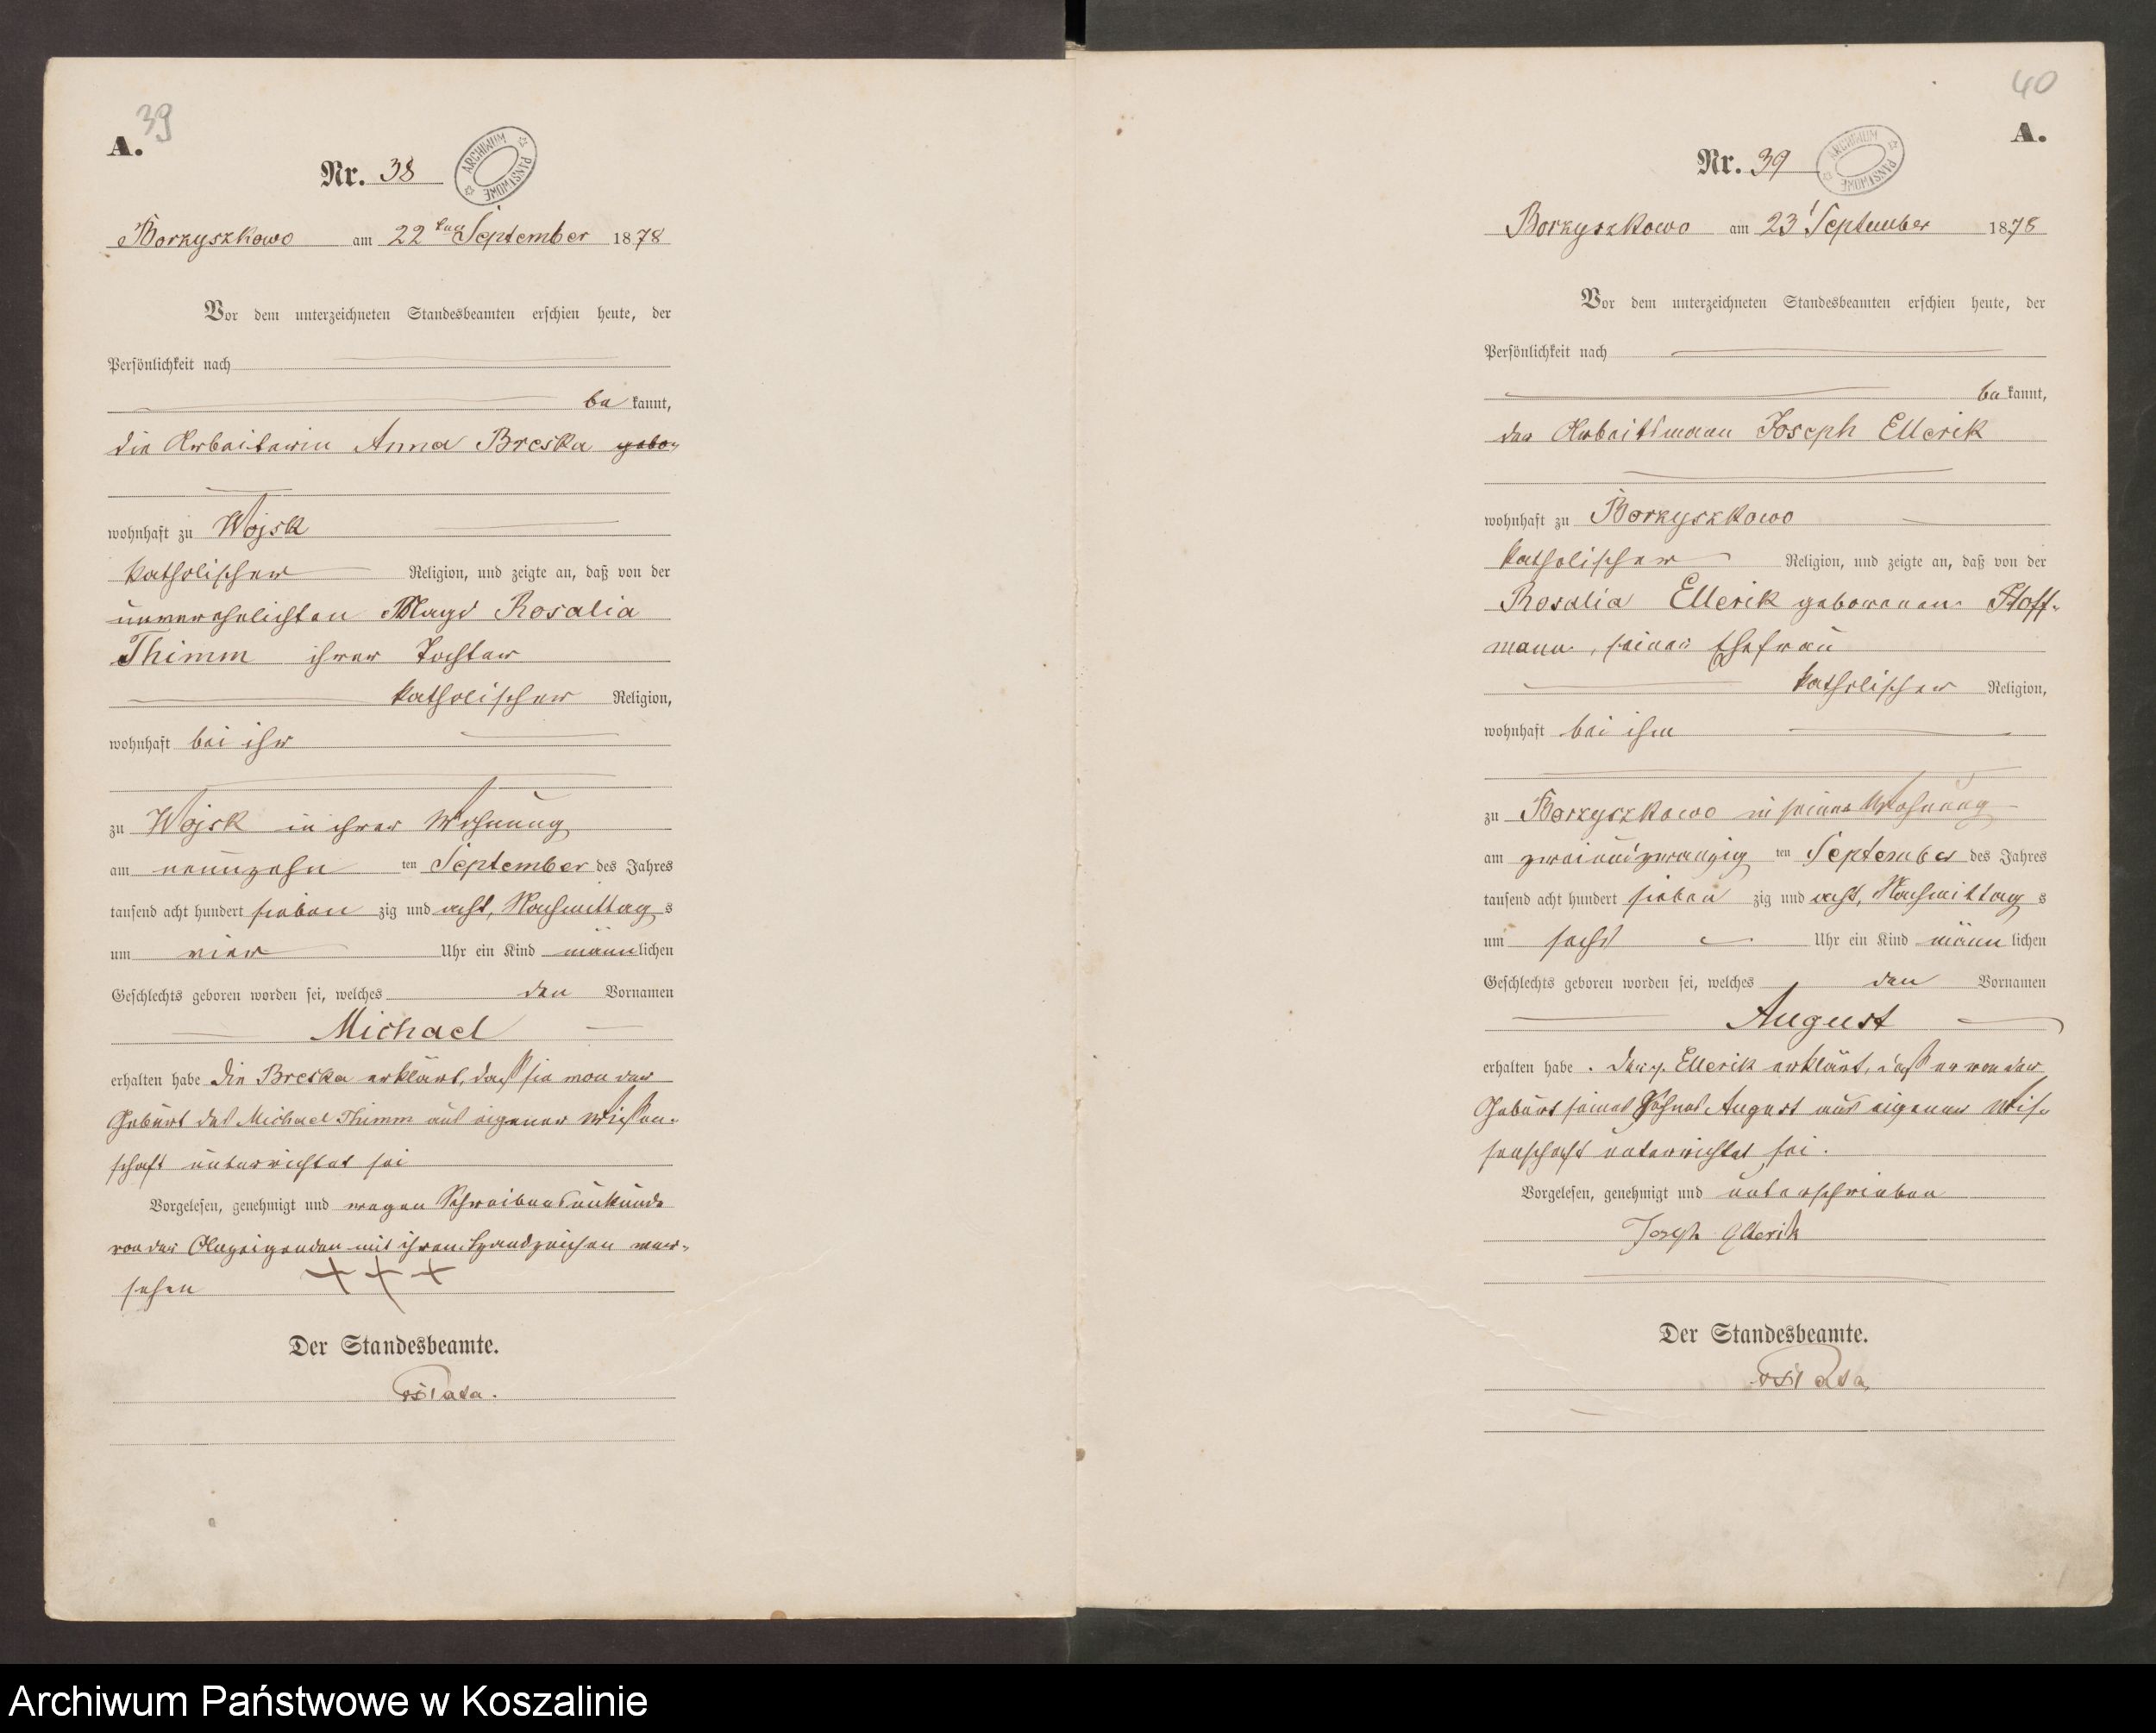 39
A.
Nr. 38
ARCHIWUM PAŃSTWOWE
Borzyszkowo am 22ten September 1878
Vor dem unterzeichneten Standesbeamten erschien heute, der
Persönlichkeit nach
be kannt,
die Arbeiterin Anna Breska gebo-
wohnhaft zu Wojsk
katholischer Religion, und zeigte an, daß von der
unverehelichten Magd Rosalia
Thimm ihrer Tochter
katholischer Religion,
wohnhaft bei ihr
zu Wojsk in ihrer Wohnung
am neunzehn ten September des Jahres
tausend acht hundert sieben zig und acht, Nachmittag s
um vier Uhr ein Kind männ lichen
Geschlechts geboren worden sei, welches den Vornamen
Michael
erhalten habe Die Breska erklärt, daß sie von der
Geburt des Michael Thimm aus eigener Wissen-
schaft unterrichtet sei
Vorgelesen, genehmigt und wegen Schreibensunkunde
von der Anzeigenden mit ihrem Handzeichen ver-
sehen +++
Der Standesbeamte.
40
A.
Nr. 39
ARCHIWUM PAŃSTWOWE
Borzyszkowo am 23t September 1878
Vor dem unterzeichneten Standesbeamten erschien heute, der
Persönlichkeit nach
be kannt,
der Arbeitsmann Joseph Ellerik
wohnhaft zu Borzyszkowo
katholischer Religion, und zeigte an, daß von der
Rosalia Ellerik geborenen Hoff-
mann, seiner Ehefrau
katholischer Religion,
wohnhaft bei ihm
zu Borzyszkowo in seiner Wohnung
am zweiundzwanzig ten September des Jahres
tausend acht hundert sieben zig und acht, Nachmittag s
um sechs Uhr ein Kind männ lichen
Geschlechts geboren worden sei, welches den Vornamen
August
erhalten habe. Der p. Ellerik erklärt, daß er von der
Geburt seines Sohnes August aus eigener Wis-
senschaft unterrichtet sei.
Vorgelesen, genehmigt und unterschrieben
Joseph Ellerik
Der Standesbeamte.
Archiwum Państwowe w Koszalinie